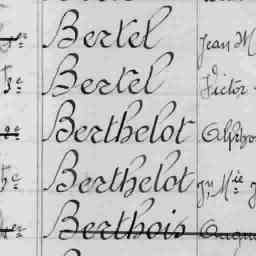 Bertel Jean M
3e Bertel Victor
Berthelot Alpho
3e Berthelot Jn Mie J
Berthois Augu